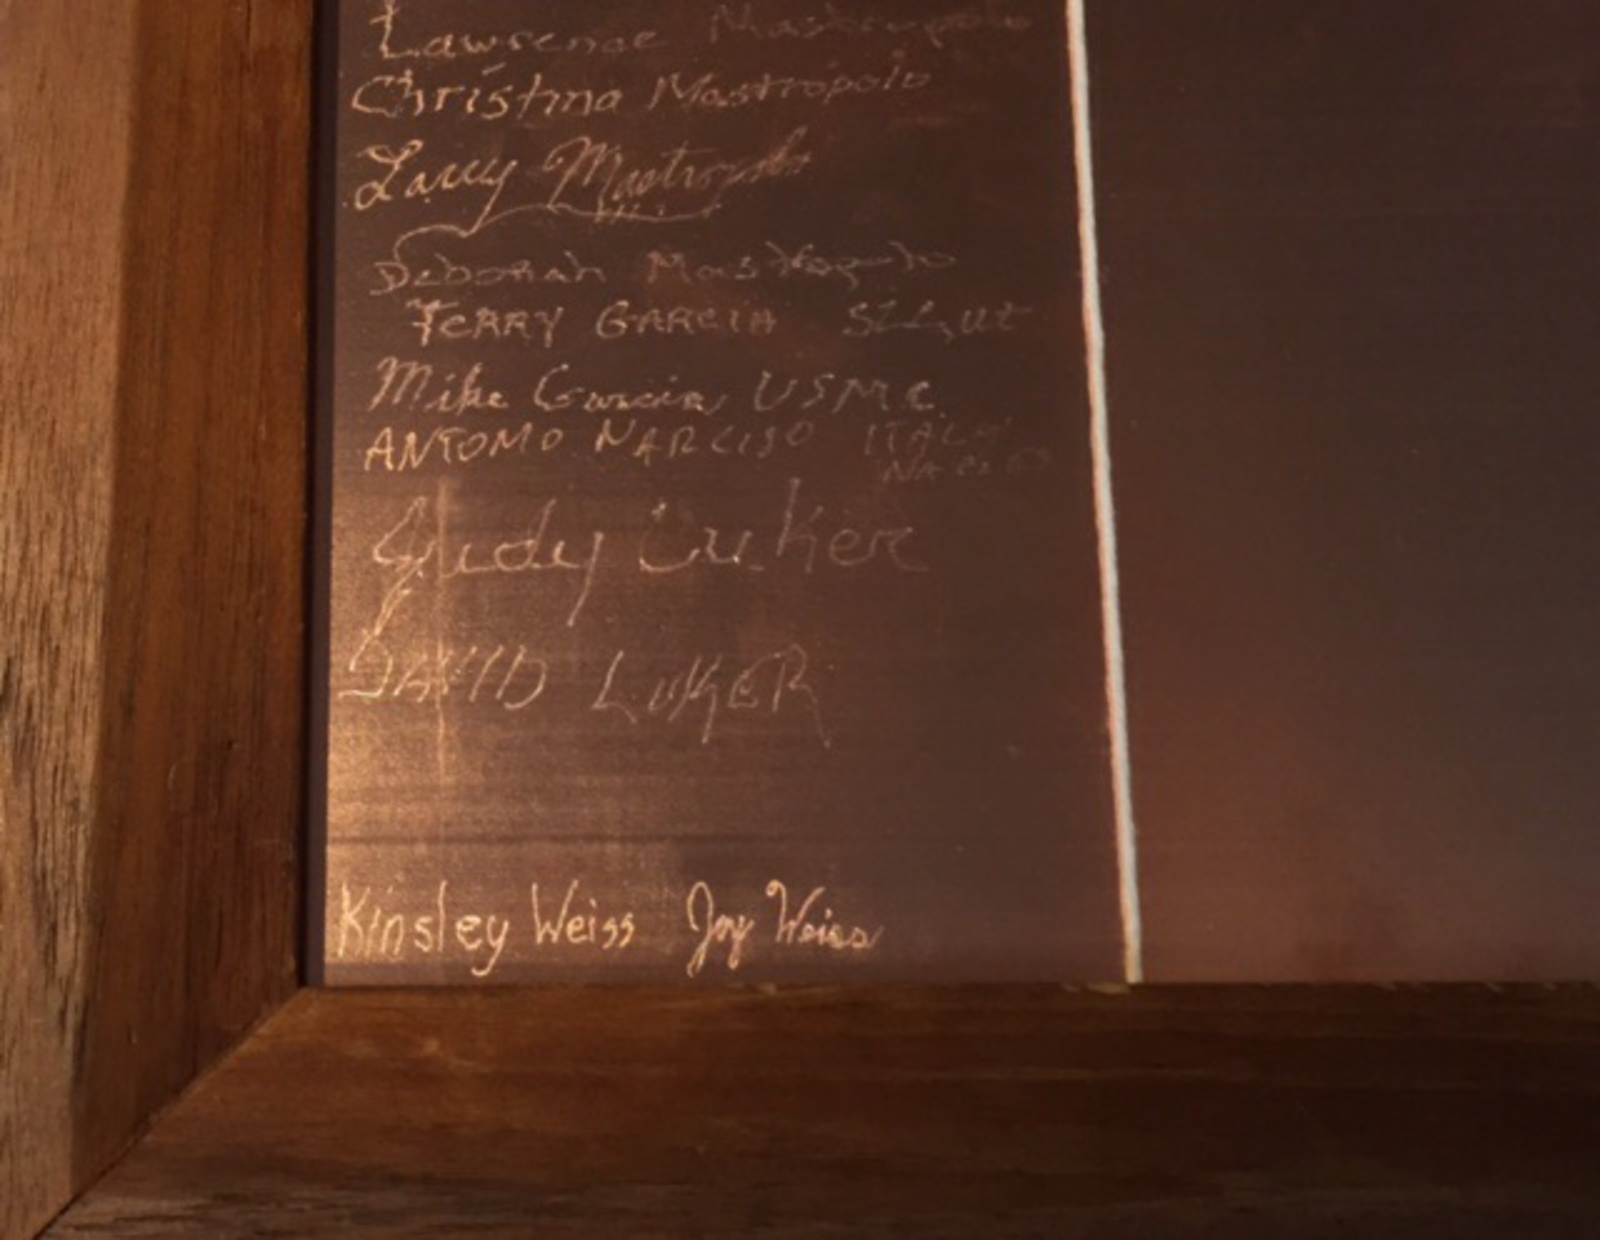 Lawrence Mastropolo
Christina Mastropolo
Larry Mastropolo
Deborah Mastropolo
TERRY GARCIA
Mike Garcia USMC
ANTONIO NARCISO ITALY
Judy Luker
DAVID LUKER
Kinsley Weiss Joy Weiss